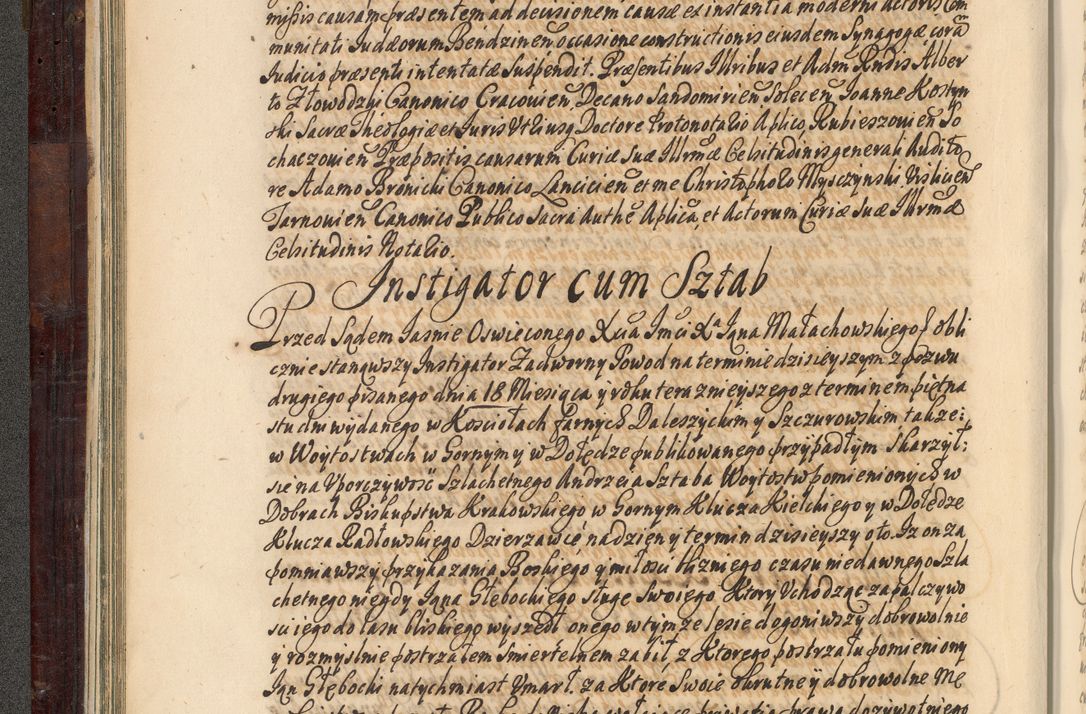 missis causam præsentem ad decisionem causæ et instantia moderni actoris Com
munitati Judæorum Bendzineñ occasione constructionis eiusdem Synagogæ corã
Judicio præsenti intentatæ suspendit. Præsentibus Illribus et Adm Rndis Alber
to Złowodzki Canonico Cracovieñ, Decano Sandomirieñ Soleceñ, Joanne Kostyn
ski Sacræ Theologiæ et Juris Vtriusq Doctore Protonotario Aplico, Rubieszovieñ So
chaczovieñ Præpositis causarum Curiæ Suæ Illrmæ Celsitudinis generali Audito
re Adamo Bronicki Canonico Lancicieñ et me Christophoro Mysczynski Vislicieñ
Tarnovieñ Canonico Publico Sacra Authe Aplica, et Actorum Curiæ Suæ Illrmæ
Celsitudinis Notario.
Instigator cum Sztab
Przed Sądem Jasnie Oswieconego Xcia Jmci Xa Jana Małachowskiego &c obli
cznie stanąwszy Instigator Zadworny Powod na terminie dzisieyszym z pozwu
drugiego pisanego dnia 18 Miesiąca y roku teraznieyszego z terminem piętna
stu dni wydanego w Kosciołach farnych Daleszyckim y Szczurowskim także:
w Woytostwach w Gornym y w Dołędze publikowanego przypadłym skarzył:
sie na Vporczywość Szlachetnego Andrzeia Sztaba Woytostw pomienionych w
Dobrach Biskupstwa Krakowskiego w Gornym Klucza Kielckiego y w Dołędze
Klucza Radłowskiego Dzierzawcę na dzień y termin dzisieyszy oto. Iz on za
pomniawszy przykazania Boskiego y miłosci blizniego czasu niedawnego Szla
chetnego niegdy Jana Głębockiego sługę swoiego Ktory Vchodząc zapalczywo
sci iego do lasu bliskiego wyszedł onego w tymze lesie dogoniwszy dobrowolnie
y rozmyslnie postrzałem smiertelnem zabił z Ktorego postrzału pomieniony
Jan Głębocki natychmiast Vmarł. za Ktore swoie okrutne y dobrowolne Mę